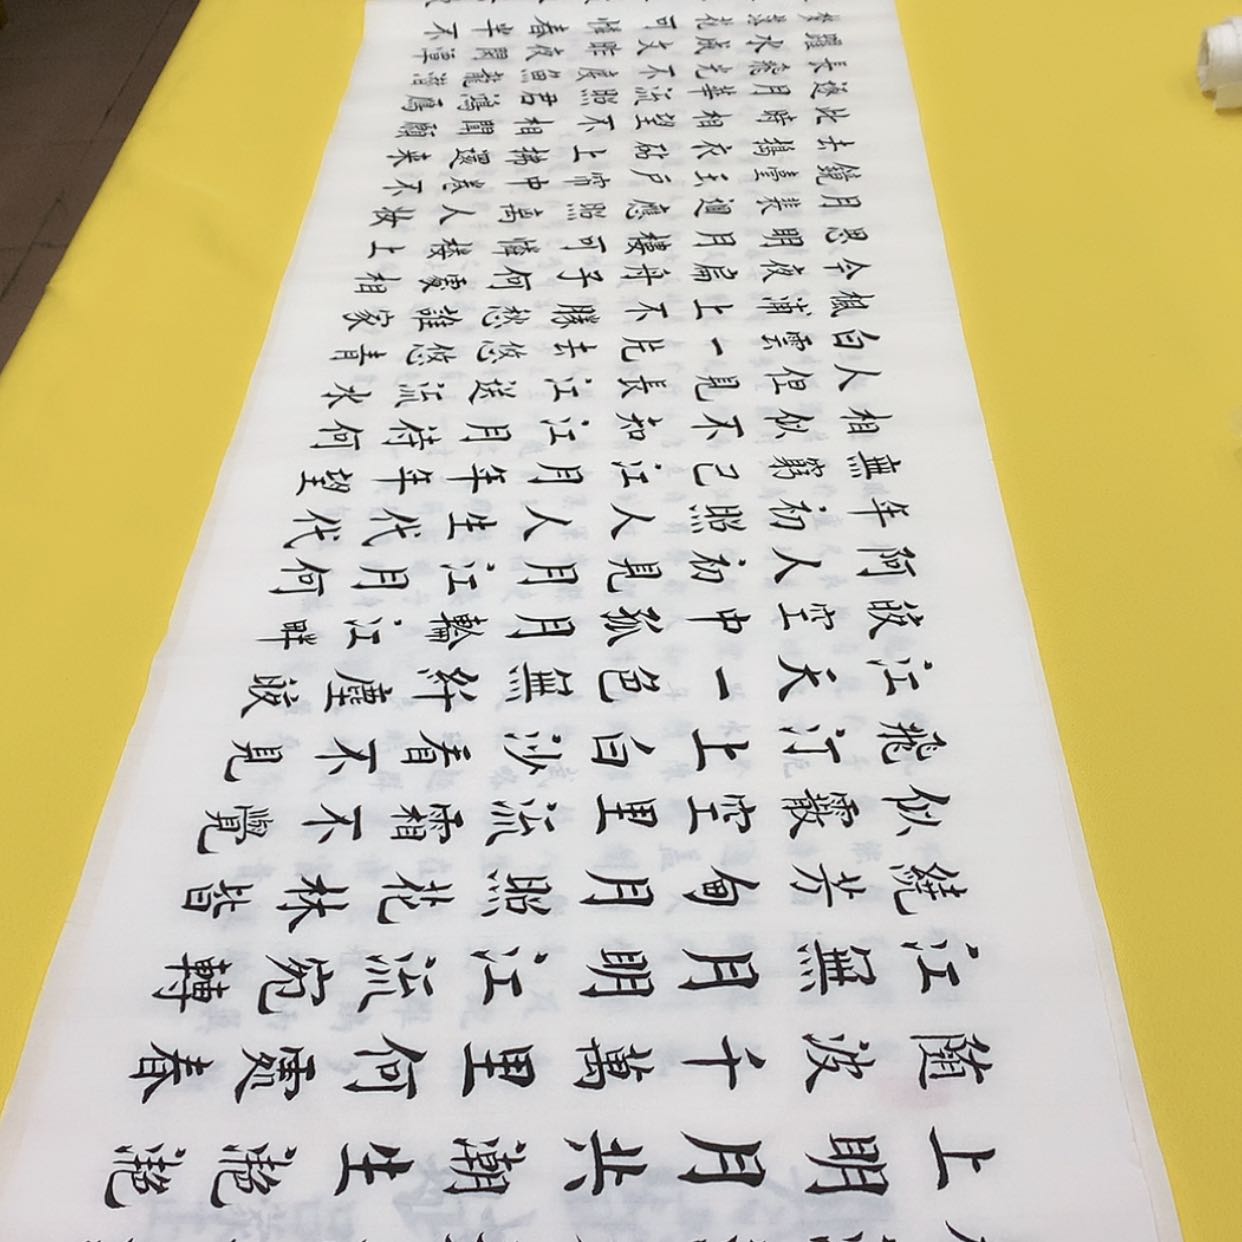 上明月共潮生灩灩
隨波千萬里何處春
江無月明江流宛轉
繞芳甸月照花林皆
似霰空里流霜不覺
飛汀上白沙看不見
江天一色無纖塵皎
皎空中孤月輪江畔
何人初見月江月何
年初照人人生代代
無窮已江月年年望
相似不知江月待何
人但見長江送流水
白雲一片去悠悠青
楓浦上不勝愁誰家
今夜扁舟子何處相
思明月樓可憐樓上
月裴迴應照離人妝
鏡臺玉戶簾中卷不
去擣衣砧上拂還來
此時相望不相聞願
逐月華流照君鴻鴈
長飛光不度魚龍潛
躍水成文昨夜閑潭
夢落花可憐春半不